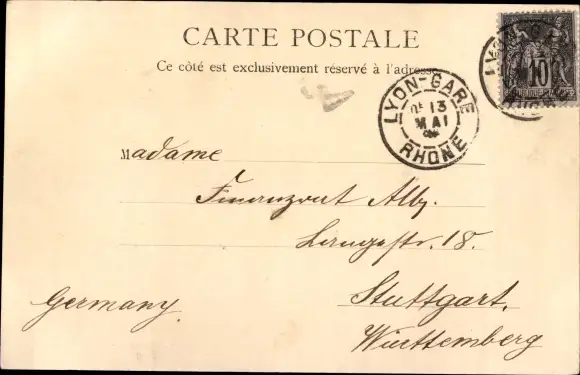 CARTE POSTALE
Ce côté est exclusivement réservé à l'adresse
LYON-GARE
13
MAI
RHONE
10
Madame
Finanzrat Alby.
Langestr. 18.
Stuttgart,
Germany.
Württemberg